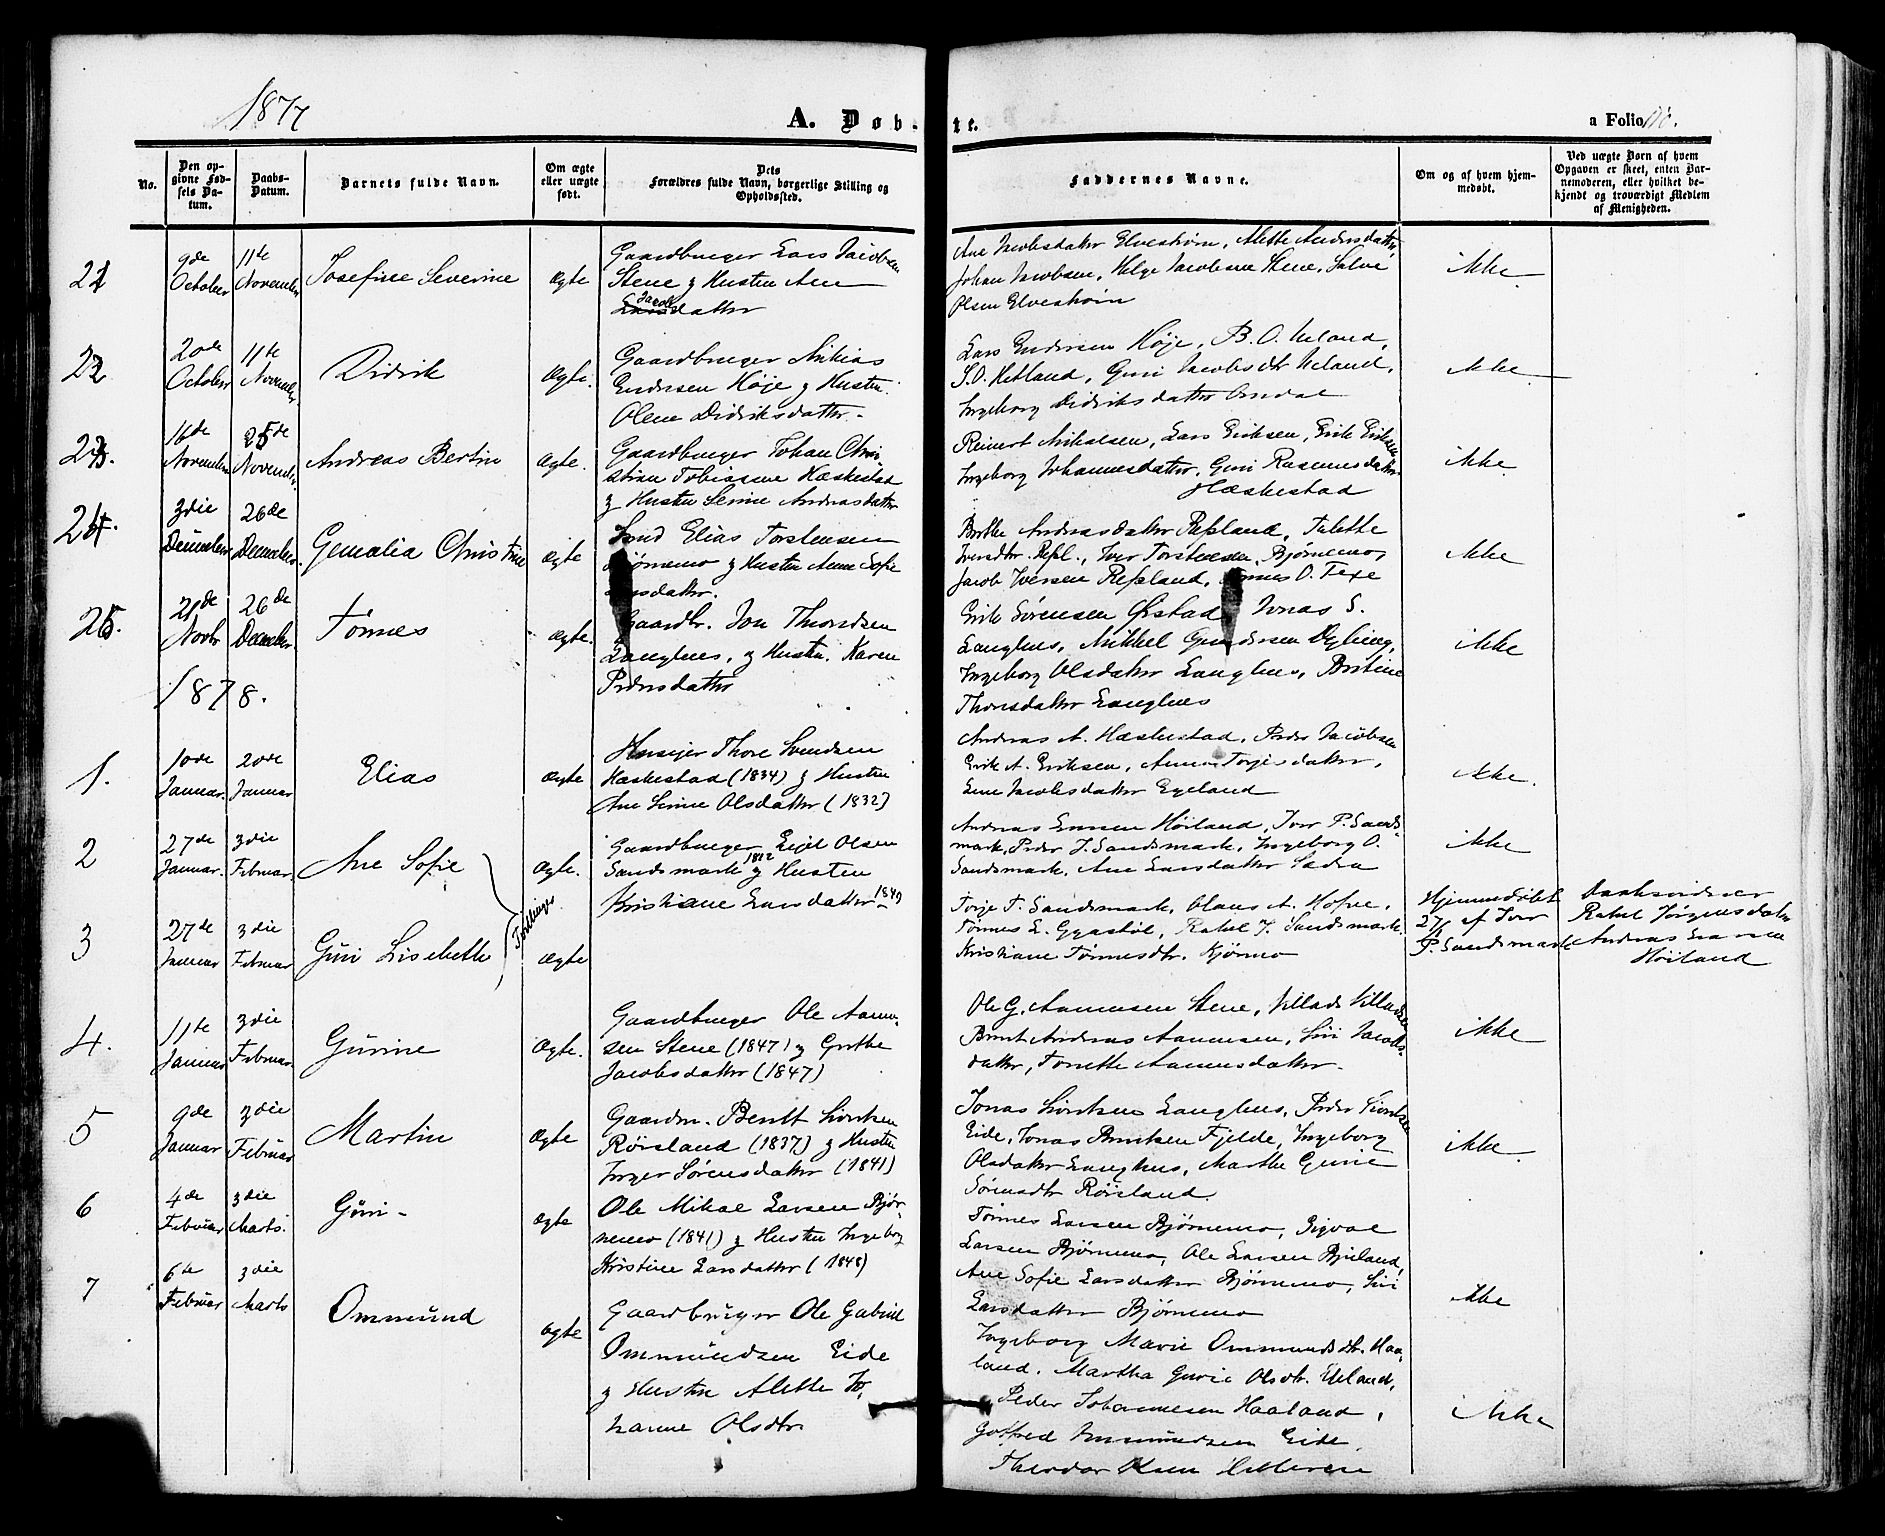 1877
A. Døb-
te.
a Folio
No.
Den op-
givne Fød-
sels Da-
tum.
Daabs-
Datum.
Barnets fulde Navn.
Om ægte
eller uægte
født.
Dets
Forældres fulde Navn, borgerlige Stilling og
Opholdssted.
Faddernes Navne.
Om og af hvem hjem-
medøbt.
Ved uægte Børn af hvem
Opgaven er skeet, enten Bar-
nemoderen, eller hvilket be-
kjendt og troværdigt Medlem
af Menigheden.
21
9de
October
11te
November
Josefine Severine
Ægte
Gaardbruger Lars Jacobsen
Stene og Hustru Ane
Jacobsdatter
Ane Jacobsdatter Elvestrøm, Alette Andersdatter
Johan Jacobsen, Helge Jacobsen Stene, Salve
Olsen Elvestrøm
ikke
22
20de
October
11te
November
Didrik
Ægte.
Gaardbruger Mikias
Endresen Høje og Hustru
Olene Didriksdatter.
Lars Endresen Høje, B. O. Ueland,
S. O. Hetland, Guri Jacobsdtr Ueland,
Ingeborg Didriksdatter Omdal
ikke
23.
16de
November
25de
November
Andreas Bertin
Ægte.
Gaardbruger Johan Chri
stian Tobiassen Hæskestad
og Hustru Serine Andreasdatter
Reinert Mikalsen, Lars Eriksen, Erik Eriksen
Ingeborg Johannesdatter, Guri Rasmusdatter
Hæskestad
ikke
24.
3die
December
26de
December
Gemalia Christine
ægte
Elias Torstensen
Bjørnemo og Hustru Anne Sofie
Berthe Andreasdatter Refsland, Talette
Iversdtr. Refsl., Iver Torstensen Bjørnemo,
Jacob Iversen Refsland, Tønnes O. Fexe
ikke
25.
21de
Novbr
26de
December
Tønnes
ægte.
Gaardbr. Jon Thordsen
Langhus, og Hustru. Karen
Pedersdatter
Erik Sørensen Ørstad, Jonas S.
Langhus, Mikkel Gundersen Dybing,
Ingeborg Olsdatter Langhus, Bertine
Thorsdatter Langhus
ikke
1878.
1.
10de
Januar.
20de
Januar
Elias
Ægte
Husejer Thore Svendsen
Hæskestad (1834) og Hustru
Ane Serine Olsdatter (1832)
Andreas A. Hæskestad, Peder Jacobsen
Erik A. Eriksen, Anne Torjesdatter,
Lene Jacobsdatter Egeland
ikke.
2
27de
Januar.
3die
Februar.
Ane Sofie
Ægte.
Gaardbruger Eigil Olsen
Sandsmark og Hustru
Kristiane Larsdatter
Andreas Larsen Høiland, Iver P. Sands-
mark, Peder I. Sandsmark, Ingeborg O.
Sandsmark, Ane Larsdatter
ikke
Tvillinger
3
27de
Januar
3die
Februar
Guri Lisebette
Ægte
Torje T. Sandsmark, Claus A. Hofve,
Tønnes L. Gyastøl, Rakel J. Sandsmark.
Kristiane Tønnesdtr. Kjørmo
Hjemmedøbt
27/1 af Iver
P. Sandsmark
Daabsvidner
Rakel Jørgensdatter
Andreas Larsen
Høiland
4.
11te
Januar
3die
Februar
Gurine
Ægte.
Gaardbruger Ole Aanen-
sen Stene (1847) og Grethe
Jacobsdatter (1847)
Ole G. Aanensen Stene, Villads Villadsen
Bernt Andreas Aanensen, Siri Jacobs-
datter, Tonette Aanensdatter.
ikke
5
9de
Januar
3die
Februar
Martin
Ægte
Gaardm. Bendt Sivertsen
Røisland (1837) og Hustru
Inger Sørensdatter (1841)
Jonas Sivertsen Langhus, Peder Sivertsen
Eide, Jonas Berntsen Fjelde, Ingeborg
Olsdatter Langhus, Marthe Gurie
Sørensdtr Røisland.
ikke.
6
4de
Februar
3die
Marts.
Guri -
Ægte
Ole Mikal Larsen Bjør-
nemo (1841) og Hustru Ingeborg
Kristine Larsdatter (1848)
Tønnes Larsen Bjørnemo, Sigval
Larsen Bjørnemo, Ole Larsen Bjuland,
Ane Sofie Larsdatter Bjørnemo, Siri
Larsdatter Bjørnemo
ikke
7
6te
Februar
3die
Marts
Ommund
Ægte
Gaardbruger Ole Gabriel
Ommundsen Eide
og Hustru Alette Jo-
hanne Olsdtr
Ingeborg Marie Ommundsdtr. Haa-
land, Martha Gurie Olsdtr. Ueland,
Peder Johannesen Haaland,
Gotfred Ommundsen Eide,
Theodor Olsen
ikke